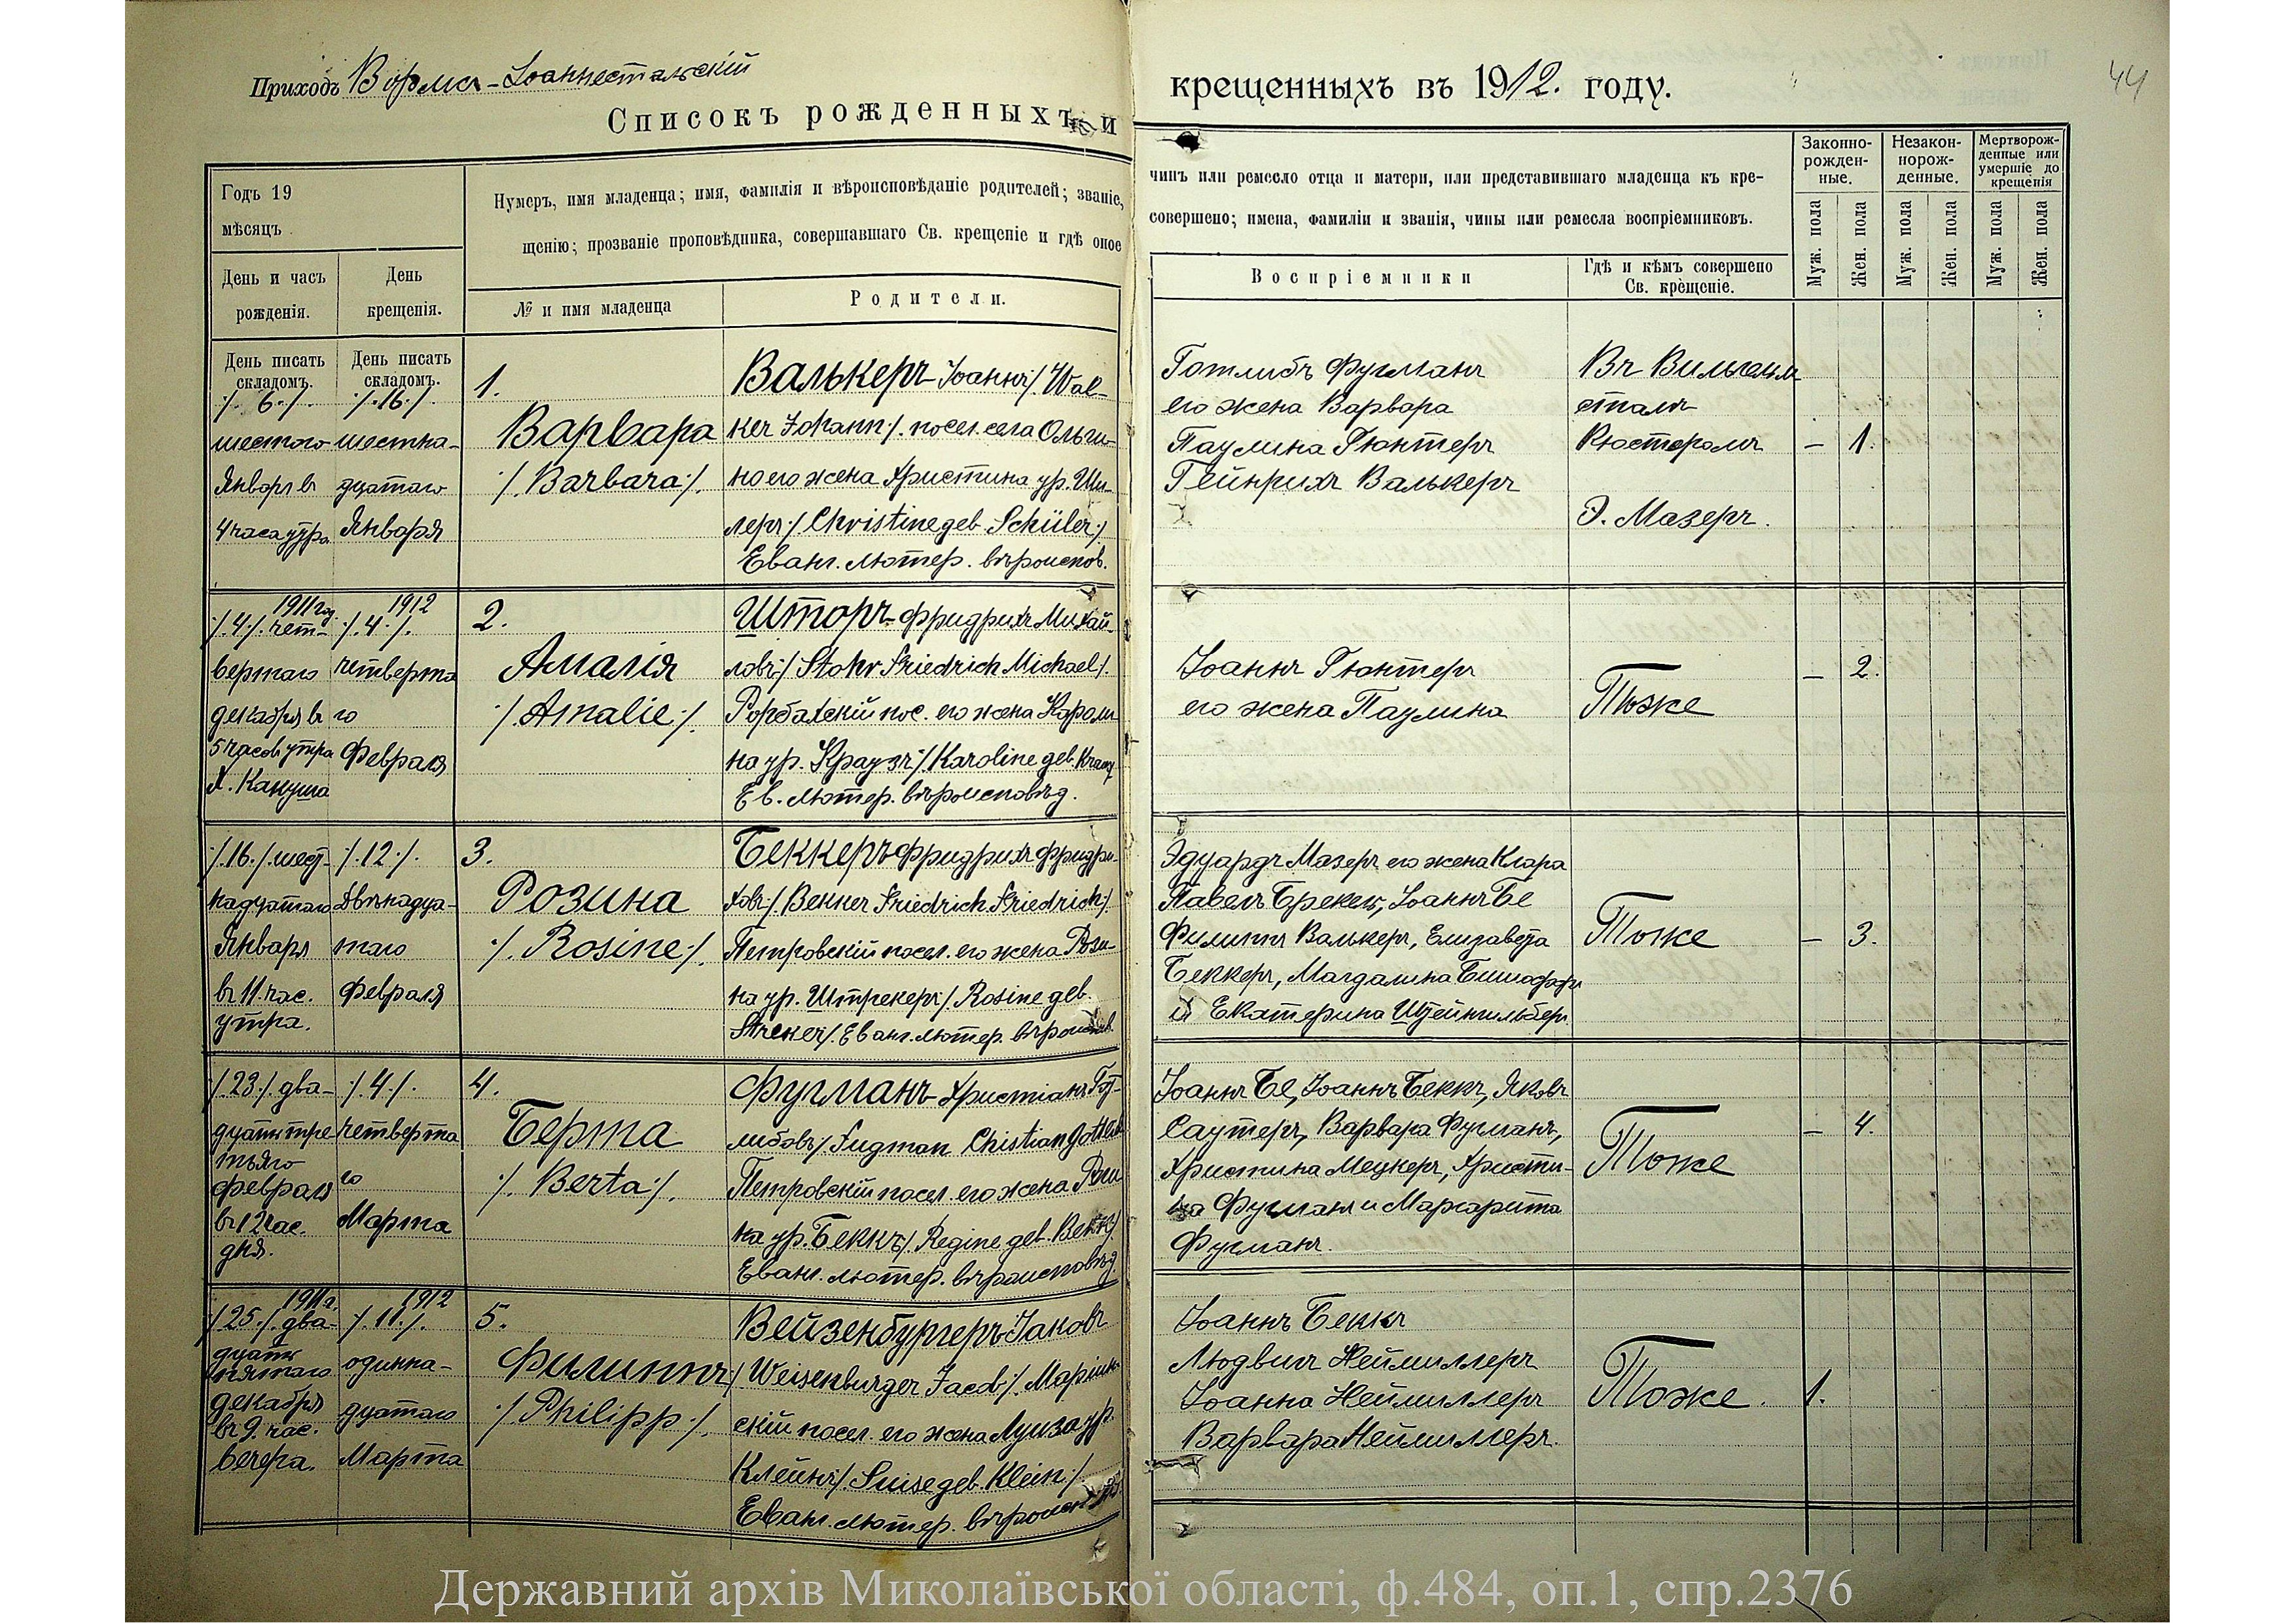 Приходъ Вормс-Іоаннестальскій
Списокъ рожденныхъ и
крещенныхъ въ 1912. году.
44
Годъ 19
мѣсяцъ
День и часъ
рожденія.
День
крещенія.
Нумеръ, имя младенца; имя, фамилія и вѣроисповѣданіе родителей; званіе,
щенію; прозваніе проповѣдника, совершавшаго Св. крещеніе и гдѣ оное
№ и имя младенца
Родители.
чинъ или ремесло отца и матери, или представившаго младенца къ кре-
совершено; имена, фамиліи и званія, чины или ремесла воспріемниковъ.
Воспріемники
Гдѣ и кѣмъ совершено
Св. крещеніе.
Законно-
рожден-
ные.
Незакон-
норож-
денные.
Мертворож-
денные или
умершіе до
крещенія
Муж. пола
Жен. пола
Муж. пола
Жен. пола
Муж. пола
Жен. пола
День писать
складомъ.
/. 6. /.
шестого
Января въ
4 часа утра
День писать
складомъ.
/. 16. /.
шестна-
дцатаго
Января
1.
Варвара
/. Barbara /.
Валькеръ Іоаннъ /. Wal-
ker Johann /. посел. села Ольги-
но его жена Христина ур. Ши-
леръ /. Christine geb. Schüler /.
Еванг. лютер. вѣроиспов.
Готлибъ Фугманъ
его жена Варвара
Паулина Гюнтеръ
Гейнрихъ Валькеръ
Въ Вильгельм
сталѣ
Кюстеромъ
Э. Мазеръ.
– 1.
1911 год.
/. 4 /. чет-
вертаго
декабря въ
5 часовъ утра
Х. Кануша
1912
/. 4. /.
четверта
го
Февраля
2.
Амалія
/. Amalie /.
Шторъ Фридрихъ Михай-
ловъ /. Stohr Friedrich Michael /.
Рорбахскій пос. его жена Кароли
на ур. Краузъ /. Karoline geb.
Ев. лютер. вѣроисповѣд.
Іоаннъ Гюнтеръ
его жена Паулина
Тоже
– 2.
/. 16. /. шест-
надцатаго
Января
въ 11. час.
утра.
/. 12 /.
Двѣнадца-
таго
Февраля
3.
Розина
/. Rosine /.
Беккеръ Фридрихъ Фридри-
ховъ /. Bekker Friedrich Friedrich /.
Петровскій посел. его жена Рози-
на ур. Штрекеръ /. Rosine geb.
Streker /. Еванг. лютер. вѣроиспов.
Эдуардъ Мазеръ его жена Клара
Павелъ Брекел, Іоаннъ Бе
Филиппъ Валькеръ, Елизавета
Беккеръ, Магдалина Бишофъ
и Екатерина Штейнгильберъ
Тоже
– 3.
/. 23. /. два-
дцать тре
тьяго
февраля
въ 12 час.
дня.
/. 4. /.
четверта
го
Марта
4.
Берта
/. Berta /.
Фугманъ Христіанъ Гот-
либовъ /. Fugman Chistian Gottlieb
Петровскій посел. его жена Реги
на ур. Беккъ /. Regine geb. Bekk /.
Еванг. лютер. вѣроисповѣд.
Іоаннъ Бе, Іоаннъ Беккъ, Яковъ
Саутеръ, Варвара Фугманъ,
Христина Мецкеръ, Христи-
на Фугманъ и Маргарита
Фугманъ.
Тоже
– 4.
1911 г.
/. 25. /. два-
дцать
пятаго
декабря
въ 9. час.
вечера.
1912
/. 11. /.
одинна-
дцатаго
Марта
5.
Филиппъ
/. Philipp /.
Вейзенбургеръ Іаковъ
/. Weisenburger Jacob /. Маріин-
скій посел. его жена Луиза ур.
Клейнъ /. Luise geb. Klein /.
Еванг. лютер. вѣроисп
Іоаннъ Беккъ
Людвигъ Неймиллеръ
Іоанна Неймиллеръ
Варвара Неймиллеръ.
Тоже.
1.
Державний архів Миколаївської області, ф.484, оп.1, спр.2376